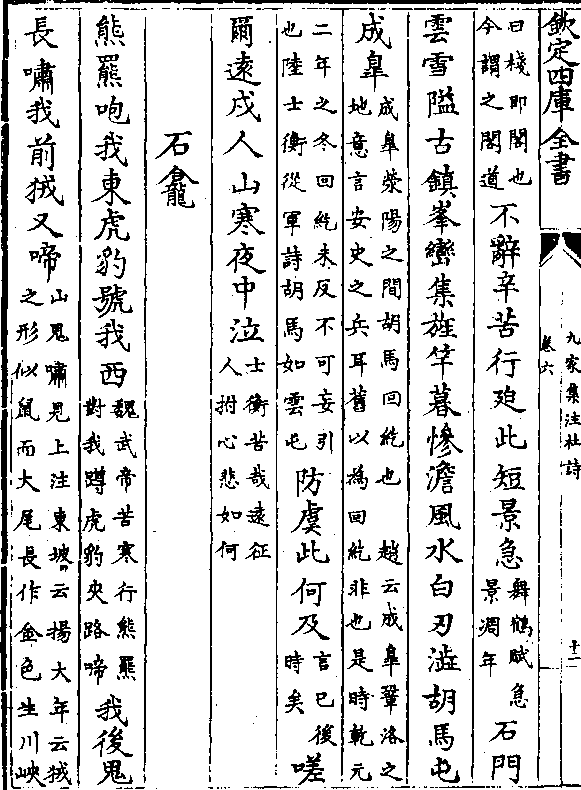 欽定四庫全書
九家集注杜詩
卷六
十二
曰棧即閣也
今謂之閣道
不辭辛苦行迫此短景急
舞鶴賦急
景凋年
石門
雲雪隘古鎮峯巒集旌竿暮慘澹風水白刃澁胡馬屯
成臯
成臯滎陽之間胡馬回紇也　趙云成臯鞏洛之
地意言安史之兵耳舊以為回紇非也是時乾元
二年之冬回紇未反不可妄引
也陸士衡從軍詩胡馬如雲屯
防虞此何及
言已後
時矣
嗟
爾遠戍人山寒夜中泣
士衡苦哉遠征
人拊心悲如何
石龕
熊羆咆我東虎豹號我西
魏武帝苦寒行熊羆
對我蹲虎豹夾路啼
我後鬼
長嘯我前狨又啼
山鬼嘯見上注東坡云揚大年云狨
之形似鼠而大尾長作金色生川峽